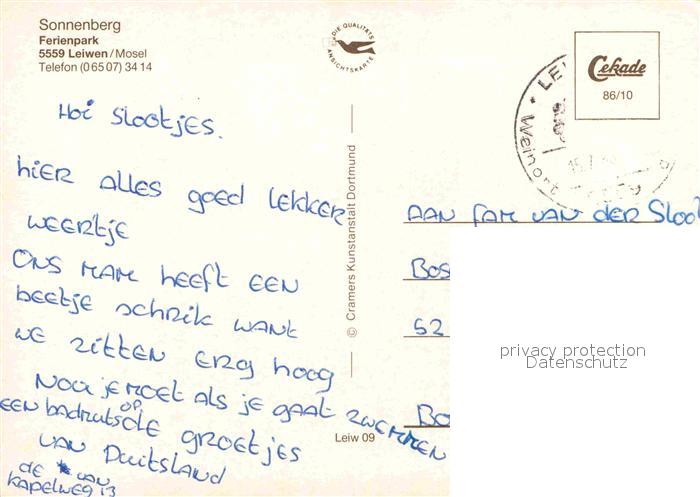 Sonnenberg
Ferienpark
5559 Leiwen/Mosel
Telefon (0 65 07) 34 14
DIE QUALITÄTS
ANSICHTSKARTE
Cekade
86/10
Weinort
Hoi Slootjes.
hier alles goed lekker
weertje
Ons mam heeft een
beetje schrik want
we zitten erg hoog
Nou je moet als je gaat zwemmen
een badmuts op
groetjes
van Duitsland
de van
Kapelweg 13
© Cramers Kunstanstalt Dortmund
Leiw 09
Aan fam van der Sloo
Bos
52
Bo
privacy protection
Datenschutz